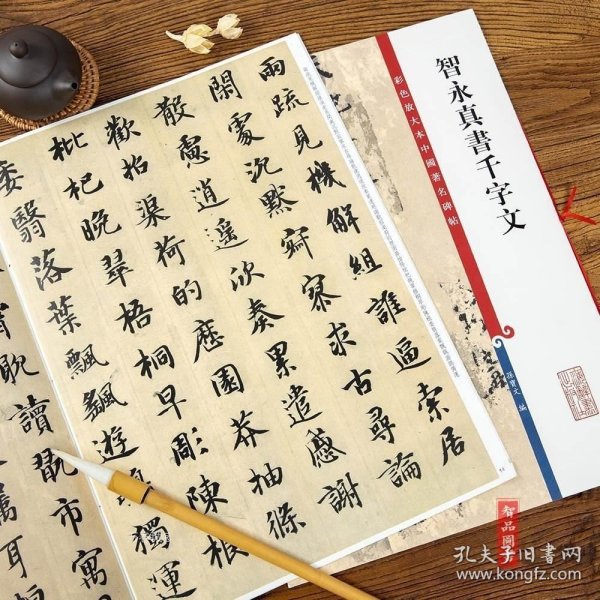 兩疏見機解組誰逼索居
閑處沉默寂寥求古尋論
散慮逍遙欣奏累遣慼謝
歡招渠荷的歷園莽抽條
枇杷晚翠梧桐早彫陳根
委翳落葉飄飖遊獨運
霄耽讀翫市寓
屬耳垣
智永真書千字文
彩色放大本中國著名碑帖
孫寶文 編
智品圖
孔夫子旧书网
www.kongfz.com